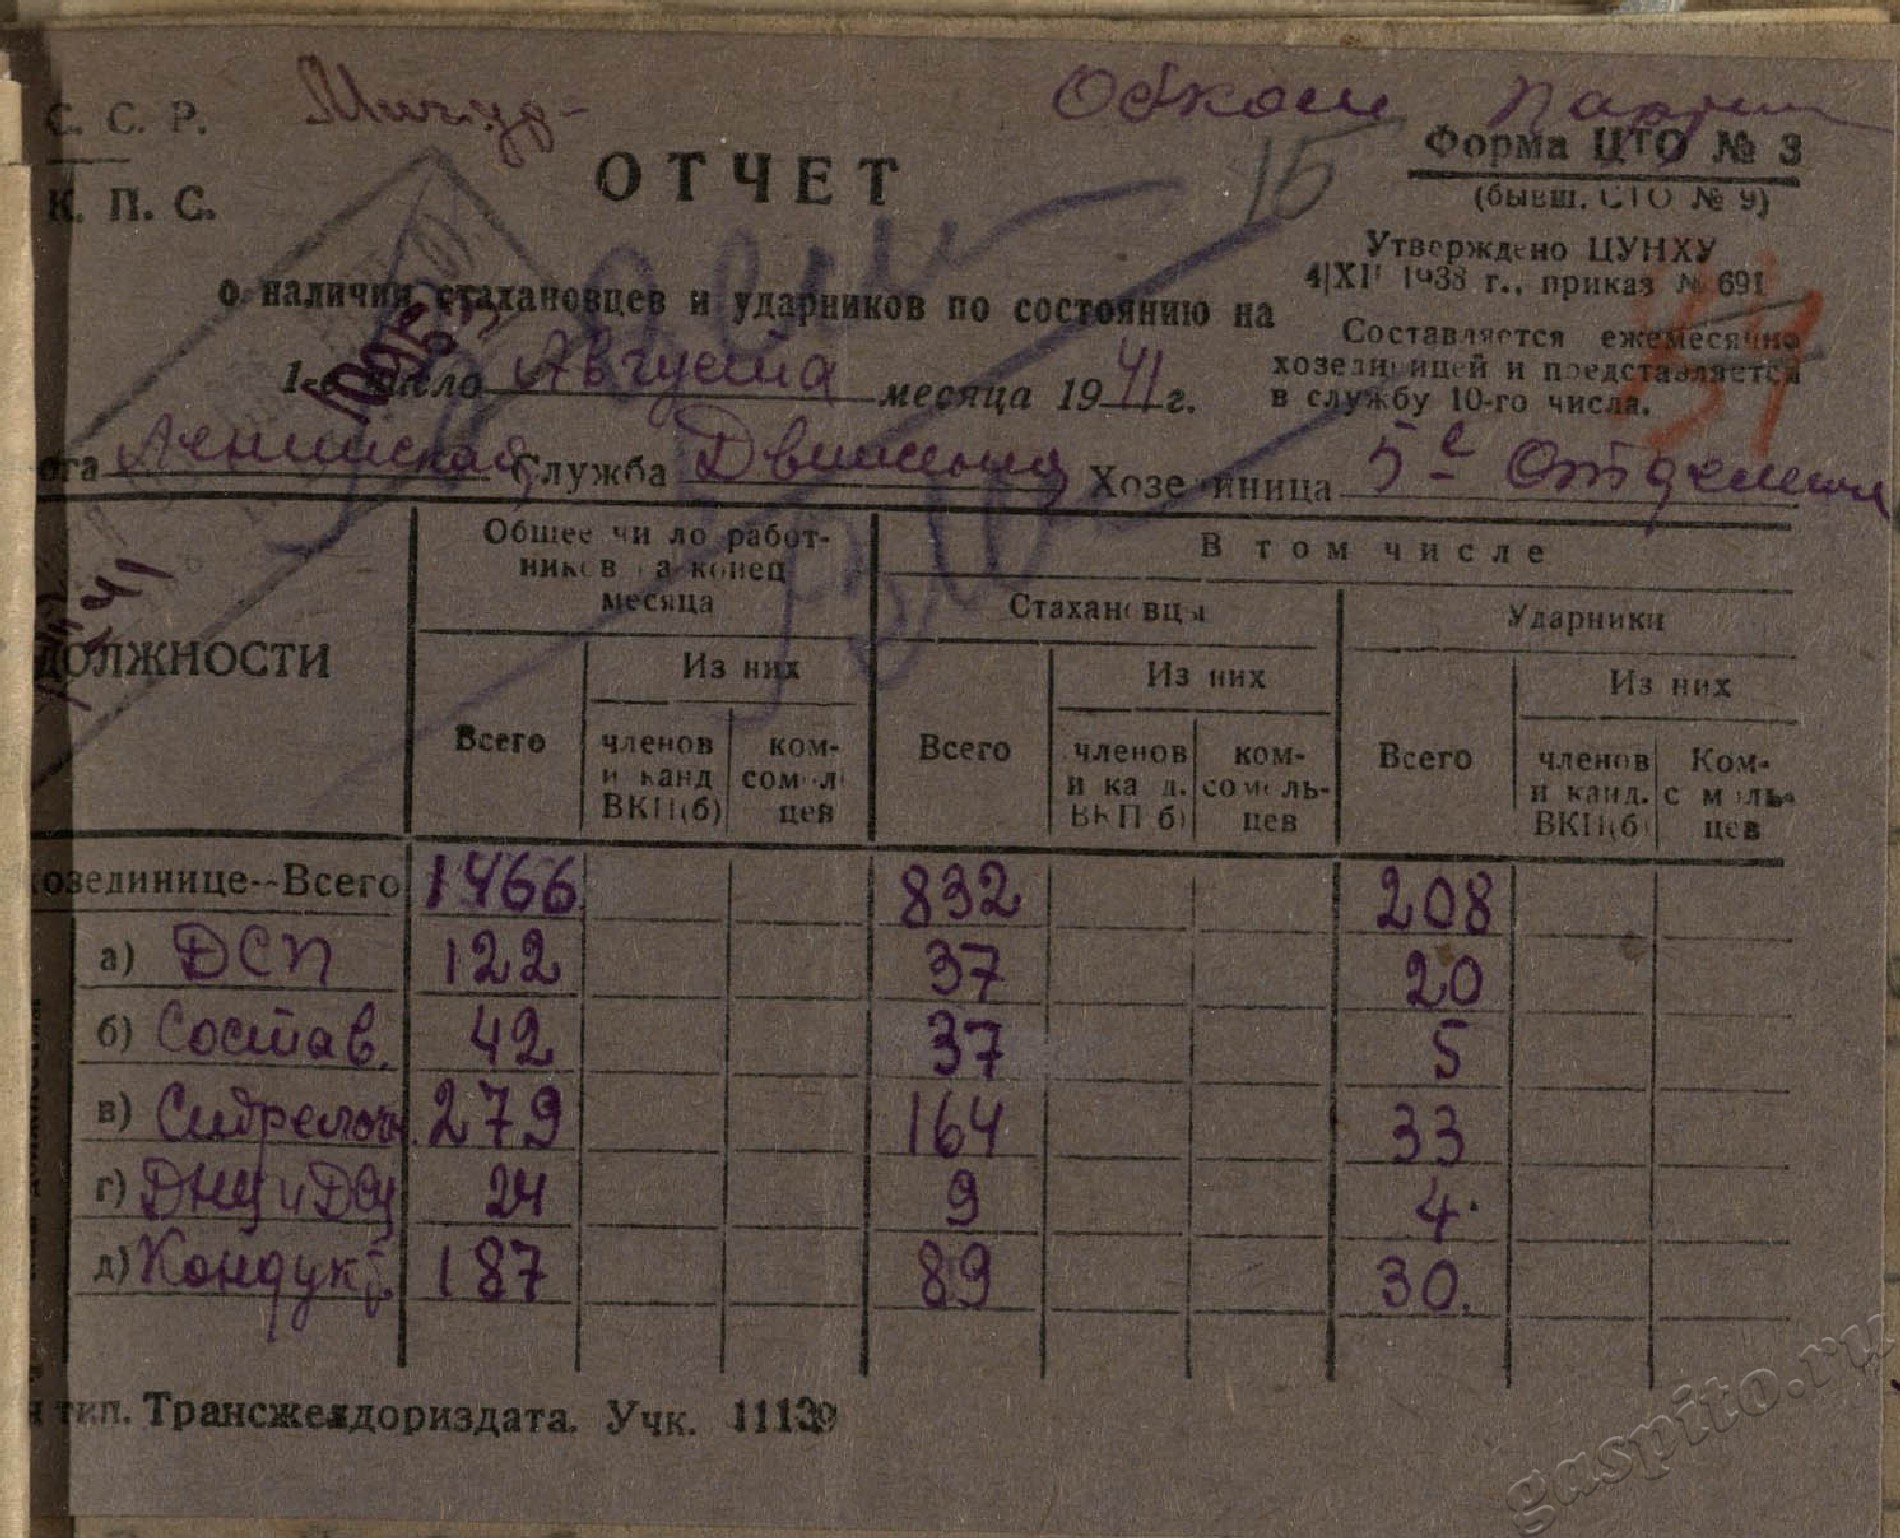 С. С. Р.
Обком
К. П. С.
ОТЧЕТ
15
Форма ЦТО № 3
(бывш. СТО № 9)
Утверждено ЦУНХУ
4/XII 1938 г., приказ № 691
о наличии стахановцев и ударников по состоянию на
Составляется ежемесячно
хозединицей и представляется
в службу 10-го числа.
1-е число Августа месяца 1941 г.
ога Ленинская Служба Движения Хозединица 5е Отделение
ДОЛЖНОСТИ
Общее число работ-
ников на конец
месяца
В том числе
Стахановцы
Ударники
Из них
Из них
Из них
Всего
членов
и канд
ВКП(б)
ком-
сомоль
цев
Всего
членов
и канд.
ВКП(б)
ком-
сомоль-
цев
Всего
членов
и канд.
ВКП(б)
Ком-
сомоль-
цев
озединице--Всего 1466 832 208
а) ДСП 122 37 20
б) Состав. 42 37 5
в) 279 164 33
г) ДНЦ и ДСЦ 24 9 4
д) Кондукт. 187 89 30.
тип. Трансжелдориздата. Учк. 11139
gaspito.ru